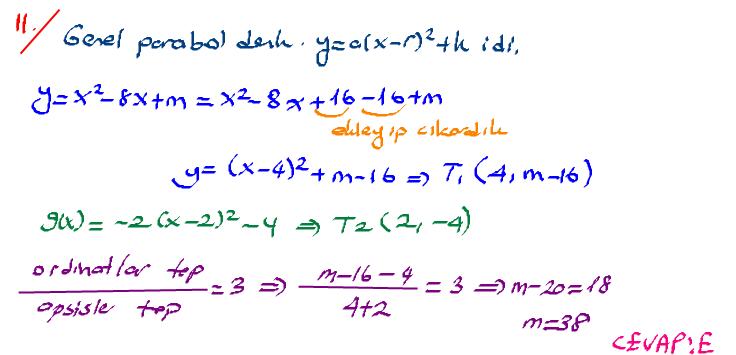 11/ Genel parabol denk. y=a(x-r)²+k idi.
y=x²-8x+m=x²-8x+16-16+m
ekleyip çıkardık
y=(x-4)²+m-16 ⇒ T₁(4, m-16)
g(x)=-2(x-2)²-4 ⇒ T2(2, -4)
ordinatlar top / apsisle top = 3 ⇒ m-16-4 / 4+2 = 3 ⇒ m-20=18
m=38
CEVAP:E